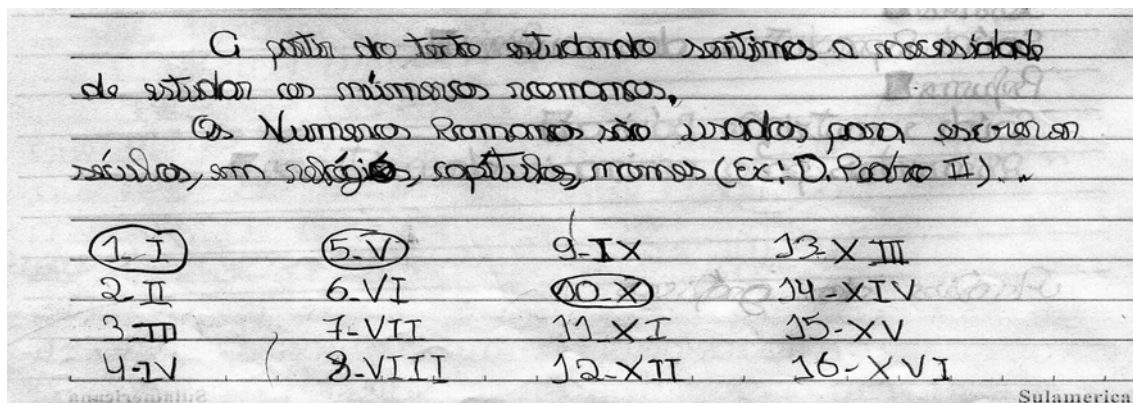 A partir do texto estudando sentimos a necessidade
de estudar os números romanos.
Os Numeros Romanos são usados para escrever
séculos, em relógios, capítulos, nomes (Ex: D. Pedro II)...
1-I 5-V 9-IX 13-XIII
2-II 6-VI 10-X 14-XIV
3-III 7-VII 11-XI 15-XV
4-IV 8-VIII 12-XII 16-XVI
Sulamerica